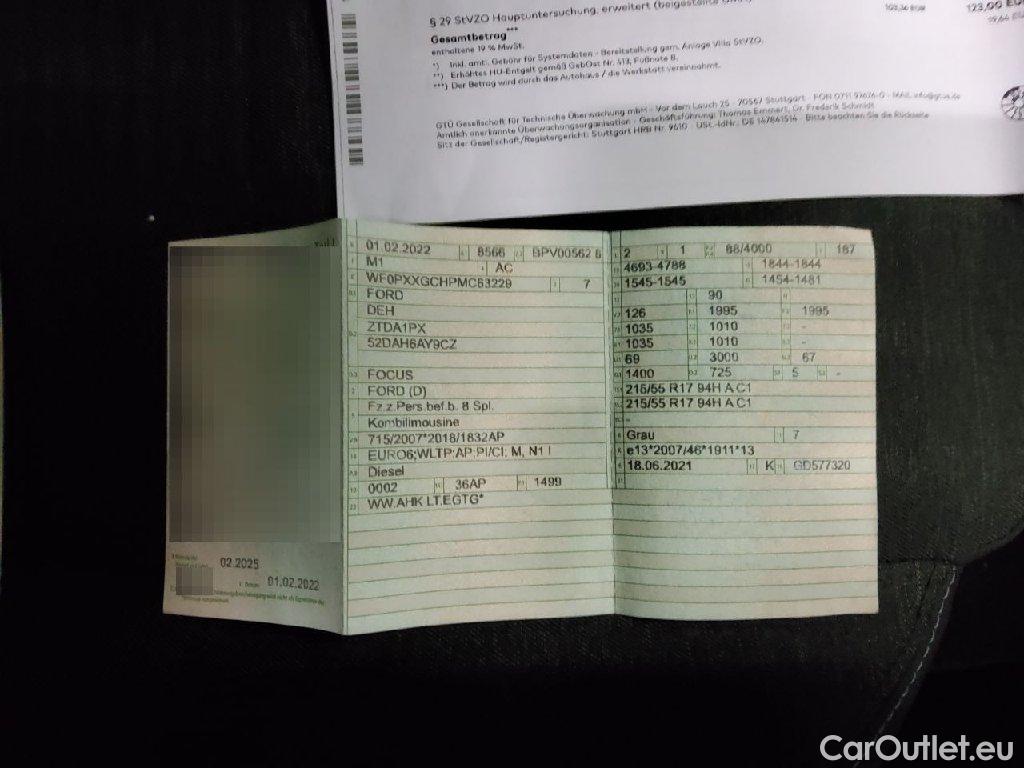 § 29 StVZO Hauptuntersuchung, erweitert (beigestellte
103,36 EUR 123,00 EU
Gesamtbetrag***
enthaltene 19 % MwSt. 19,64
*) Inkl. amtl. Gebühr für Systemdaten - Bereitstellung gem. Anlage VIIIa StVZO.
**) Erhöhtes HU-Entgelt gemäß GebOSt Nr. 413, Fußnote 8.
***) Der Betrag wird durch das Autohaus / die Werkstatt vereinnahmt.
GTÜ Gesellschaft für Technische Überwachung mbH - Vor dem Lauch 25 - 70567 Stuttgart - FON 0711 97676-0 - MAIL info@gtue.de
Amtlich anerkannte Überwachungsorganisation - Geschäftsführung: Thomas Emmert, Dr. Frederik Schmidt
Sitz der Gesellschaft/Registergericht: Stuttgart HRB Nr. 9610 - USt.-IdNr.: DE 147841514 - Bitte beachten Sie die Rückseite
01.02.2022 8566 BPV00562 8
M1 AC
WF0PXXGCHPMC63229 7
FORD
DEH
ZTDA1PX
52DAH6AY9CZ
FOCUS
FORD (D)
Fz.z.Pers.bef.b. 8 Spl.
Kombilimousine
715/2007*2018/1832AP
EURO6;WLTP;AP;PI/CI; M, N1 I
Diesel
0002 36AP 1499
WW.AHK LT.EGTG*
02.2025
01.02.2022
2 1 88/4000 187
4693-4788 1844-1844
1545-1545 1454-1481
90
126 1995 1995
1035 1010 -
1035 1010 -
69 3000 67
1400 725 5 -
215/55 R17 94H A C1
215/55 R17 94H A C1
-
Grau 7
e13*2007/46*1911*13
18.06.2021 K GD577320
CarOutlet.eu